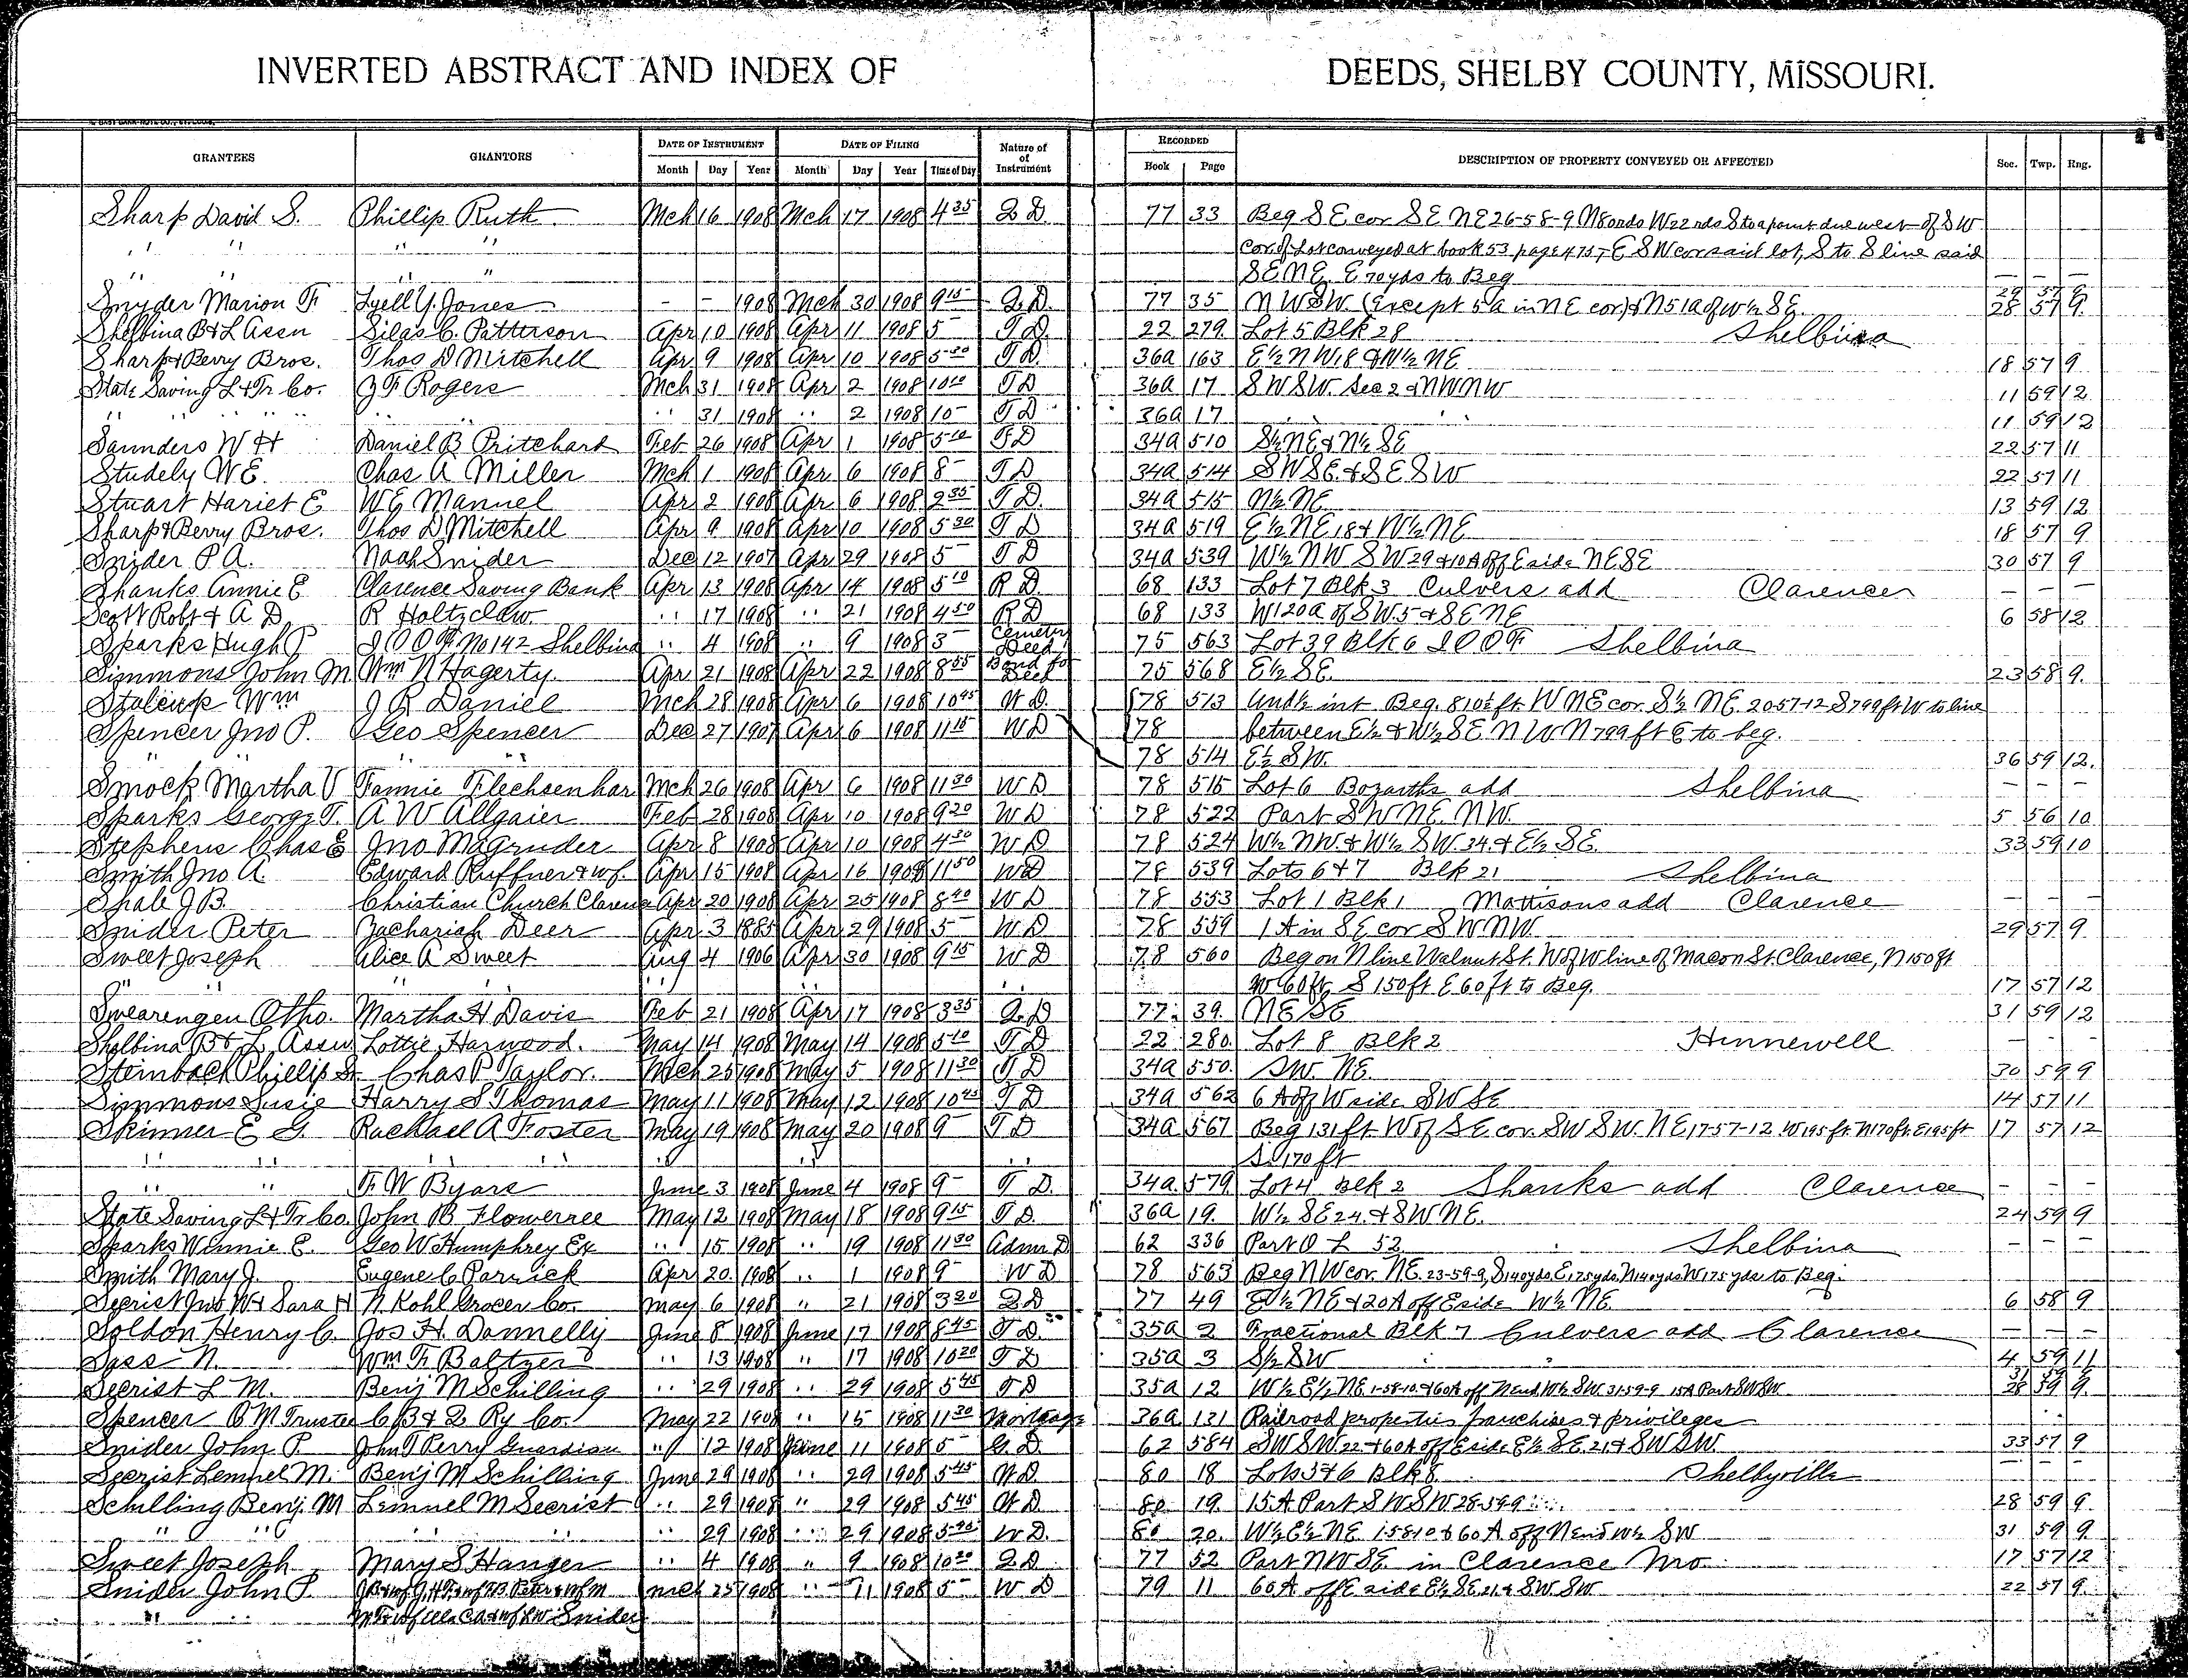 INVERTED ABSTRACT AND INDEX OF DEEDS, SHELBY COUNTY, MISSOURI.
GRANTEES GRANTORS DATE OF INSTRUMENT DATE OF FILING Nature of of Instrument RECORDED DESCRIPTION OF PROPERTY CONVEYED OR AFFECTED Sec. Twp. Rng.
Month Day Year Month Day Year Time of Day Book Page
Sharp David S. Phillip Ruth Mch 16 1908 Mch 17 1908 4 35 Q D 77 33 Beg S E cor S E NE 26-58-9 N 80 rds W 22 rds S to a point due west of S W
" " " " Cor. of Lot conveyed at book 53 page 475, E S W cor said lot, S to S line said
" " " " S E N E, E 70 yds to Beg — — —
Snyder Marion F Lyell Y. Jones - - 1908 Mch 30 1908 9 15 Q D. 77 35 N W S W (Except 5 a in N E cor) & N 51 a of W ½ S E 28 57 9.
Shelbina B & L Assn Silas C. Patterson Apr 10 1908 Apr 11 1908 5 – T D. 22 279. Lot 5 Blk 28 Shelbina
Sharp & Berry Bros. Thos D Mitchell Apr 9 1908 Apr 10 1908 5 30 T D. 36a 163 E ½ N W 18 & W ½ NE 18 57 9
State Saving L & Tr Co. J F Rogers Mch 31 1908 Apr 2 1908 10 10 T D 36a 17 S W S W. Sec 2 & N W N W 11 59 12
" " " " " 31 1908 " 2 1908 10 – T D 36a 17 " " 11 59 12
Saunders W H Daniel B Pritchard Feb 26 1908 Apr 1 1908 5 10 T D 34a 510 S ½ NE & N ½ SE 22 57 11
Studely W E. Chas A Miller Mch 1 1908 Apr 6 1908 8 – T D 34a 514 S W S E. & S E S W 22 57 11
Stuart Hariet E W E Manuel Apr 2 1908 Apr 6 1908 2 35 T D. 34a 515 N ½ NE 13 59 12
Sharp & Berry Bros. Thos D. Mitchell Apr 9 1908 Apr 10 1908 5 30 T D 34a 519 E ½ N E 18 & W ½ NE 18 57 9
Snider P A. Noah Snider Dec 12 1907 Apr 29 1908 5 – T D 34a 539 W ½ N W S W 29 & 10 A off E side NE SE 30 57 9
Shanks Annie E Clarence Saving Bank Apr 13 1908 Apr 14 1908 5 10 R D. 68 133 Lot 7 Blk 3 Culvers add Clarence — —
Scott Robt & A D. R Holtzclaw " 17 1908 " 21 1908 4 50 R D 68 133 W 120 a of S W 5 & S E NE 6 58 12
Sparks Hugh P I O O F. No 142 Shelbina " 4 1908 " 9 1908 3 – Cemetery Deed 75 563 Lot 39 Blk 6 I O O F Shelbina
Simmons John M Wm N Hagerty. Apr 21 1908 Apr 22 1908 8 55 Bond for Deed 75 568 E ½ S E. 23 58 9.
Stalcup Wm J R Daniel Mch 28 1908 Apr 6 1908 10 45 W D. 78 513 Und ½ int Beg. 810½ ft W NE cor S ½ NE. 20-57-12 S 799 ft W to line
Spencer Jno P. Geo Spencer Dec 27 1907 Apr 6 1908 11 15 W D 78 between E ½ & W ½ S E N W N 799 ft E to beg.
" " 78 514 E ½ S W. 36 59 12.
Smock Martha V Fannie Flechsenhar Mch 26 1908 Apr 6 1908 11 30 W D 78 515 Lot 6 Bozarths add Shelbina — — —
Sparks George T. A W Allgaier Feb 28 1908 Apr 10 1908 9 20 W D 78 522 Part S W NE NW. 5 56 10
Stephens Chas E Jno Magruder Apr 8 1908 Apr 10 1908 4 30 W D 78 524 W ½ NW. & W ½ S W. 34. & E ½ S E. 33 59 10
Smith Jno A Edward Ruffner & wf. Apr 15 1908 Apr 16 1908 11 50 W D 78 539 Lots 6 & 7 Blk 21 Shelbina
Shale J B. Christian Church Clarence Apr 20 1908 Apr 25 1908 8 40 W D 78 553 Lot 1 Blk 1 Mattisons add Clarence — — —
Snider Peter Zachariah Deer Apr 3 1885 Apr 29 1908 5 – W D 78 559 1 A in S E cor S W N W. 29 57 9
Sweet Joseph Alice A Sweet Aug 4 1906 Apr 30 1908 9 15 W D 78 560 Beg on N line Walnut St. W of W line of Macon St. Clarence, N 150 ft
" " " " " W 60 ft S 150 ft E 60 ft to Beg. 17 57 12
Swearengen Otho. Martha H Davis Feb 21 1908 Apr 17 1908 3 35 Q D 77 39. NE SE 31 59 12
Shelbina B & L Assn Lottie Harwood. May 14 1908 May 14 1908 5 10 T D 22 280 Lot 8 Blk 2 Hunnewell — - -
Steinbach Phillip Sr Chas P Taylor. Mch 25 1908 May 5 1908 11 30 T D 34a 550. SW. NE. 30 59 9
Simmons Susie Harry S Thomas May 11 1908 May 12 1908 10 45 T D 34a 562 6 A off W side S W S E 14 57 11
Skinner E G. Rachael A Foster May 19 1908 May 20 1908 9 – T D 34a 567 Beg 131 ft W of S E cor. SW SW. NE, 17-57-12. W 195 ft. N 170 ft. E 195 ft 17 57 12
" " " " " S 170 ft
" " F. W Byars June 3 1908 June 4 1908 9 – T D. 34a 579. Lot 4 Blk 2 Shanks add Clarence — - -
State Saving L & Tr Co. John B Flowerree May 12 1908 May 18 1908 9 15 T D. 36a 19. W ½ S E 24. & S W NE. 24 59 9
Sparks Winnie E. Geo W Humphrey Ex " 15 1908 " 19 1908 11 30 Admr D 62 336 Part O L 52 Shelbina — — —
Smith Mary J. Eugene C Parrick Apr 20. 1908 " 1 1908 9 – W D 78 563 Beg N W cor. NE. 23-59-9, S 140 yds. E, 175 yds. N 140 yds. W 175 yds to Beg.
Secrist Jno W & Sara H N. Kohl Grocer Co. May 6 1908 " 21 1908 3 20 Q D 77 49 E ½ NE & 20 A off E side W ½ NE. 6 58 9
Soldon Henry C. Jos H. Donnelly June 8 1908 June 17 1908 8 45 T D. 35a 2 Fractional Blk 7 Culvers add Clarence — — —
Sass N. Wm F. Baltzer " 13 1908 " 17 1908 10 20 T D 35a 3 S ½ S W 4 59 11
Secrist L M. Benj M Schilling " 29 1908 " 29 1908 5 45 T D 35a 12 W ½ E ½ NE 1-58-10. & 60 A off N end W ½ SW. 31-59-9 15 A Part SW SW 28 59 9.
Spencer O M Trustee C B & Q Ry Co. May 22 1908 " 15 1908 11 30 Mortgage 36a 131 Railroad properties franchises & privileges
Snider John P. John T Perry Guardian " 12 1908 June 11 1908 5 – G. D. 62 584 S W S W. 22 & 60 A off E side E ½ S E. 21 & S W S W. 33 57 9
Secrist Lemuel M. Benj M Schilling June 29 1908 " 29 1908 5 45 W D. 80 18 Lots 3 & 6 Blk 8 Shelbyville — — —
Schilling Benj. M Lemuel M Secrist " 29 1908 " 29 1908 5 45 W D. 80 19. 15 A Part S W S W. 28-59-9 28 59 9
" " " " " 29 1908 " 29 1908 W D. 80 20. W ½ E ½ NE 1-58-10 & 60 A off N end W ½ S W 31 59 9.
Sweet Joseph Mary S Hanger " 4 1908 " 9 1908 10 20 Q D 77 52 Part N W S E in Clarence Mo. 17 57 12
Snider John P. Mch 25 1908 " 11 1908 5 – W D 79 11 60 A off E side E ½ S E 21 & S W. S W 22 57 9.
" " Snider